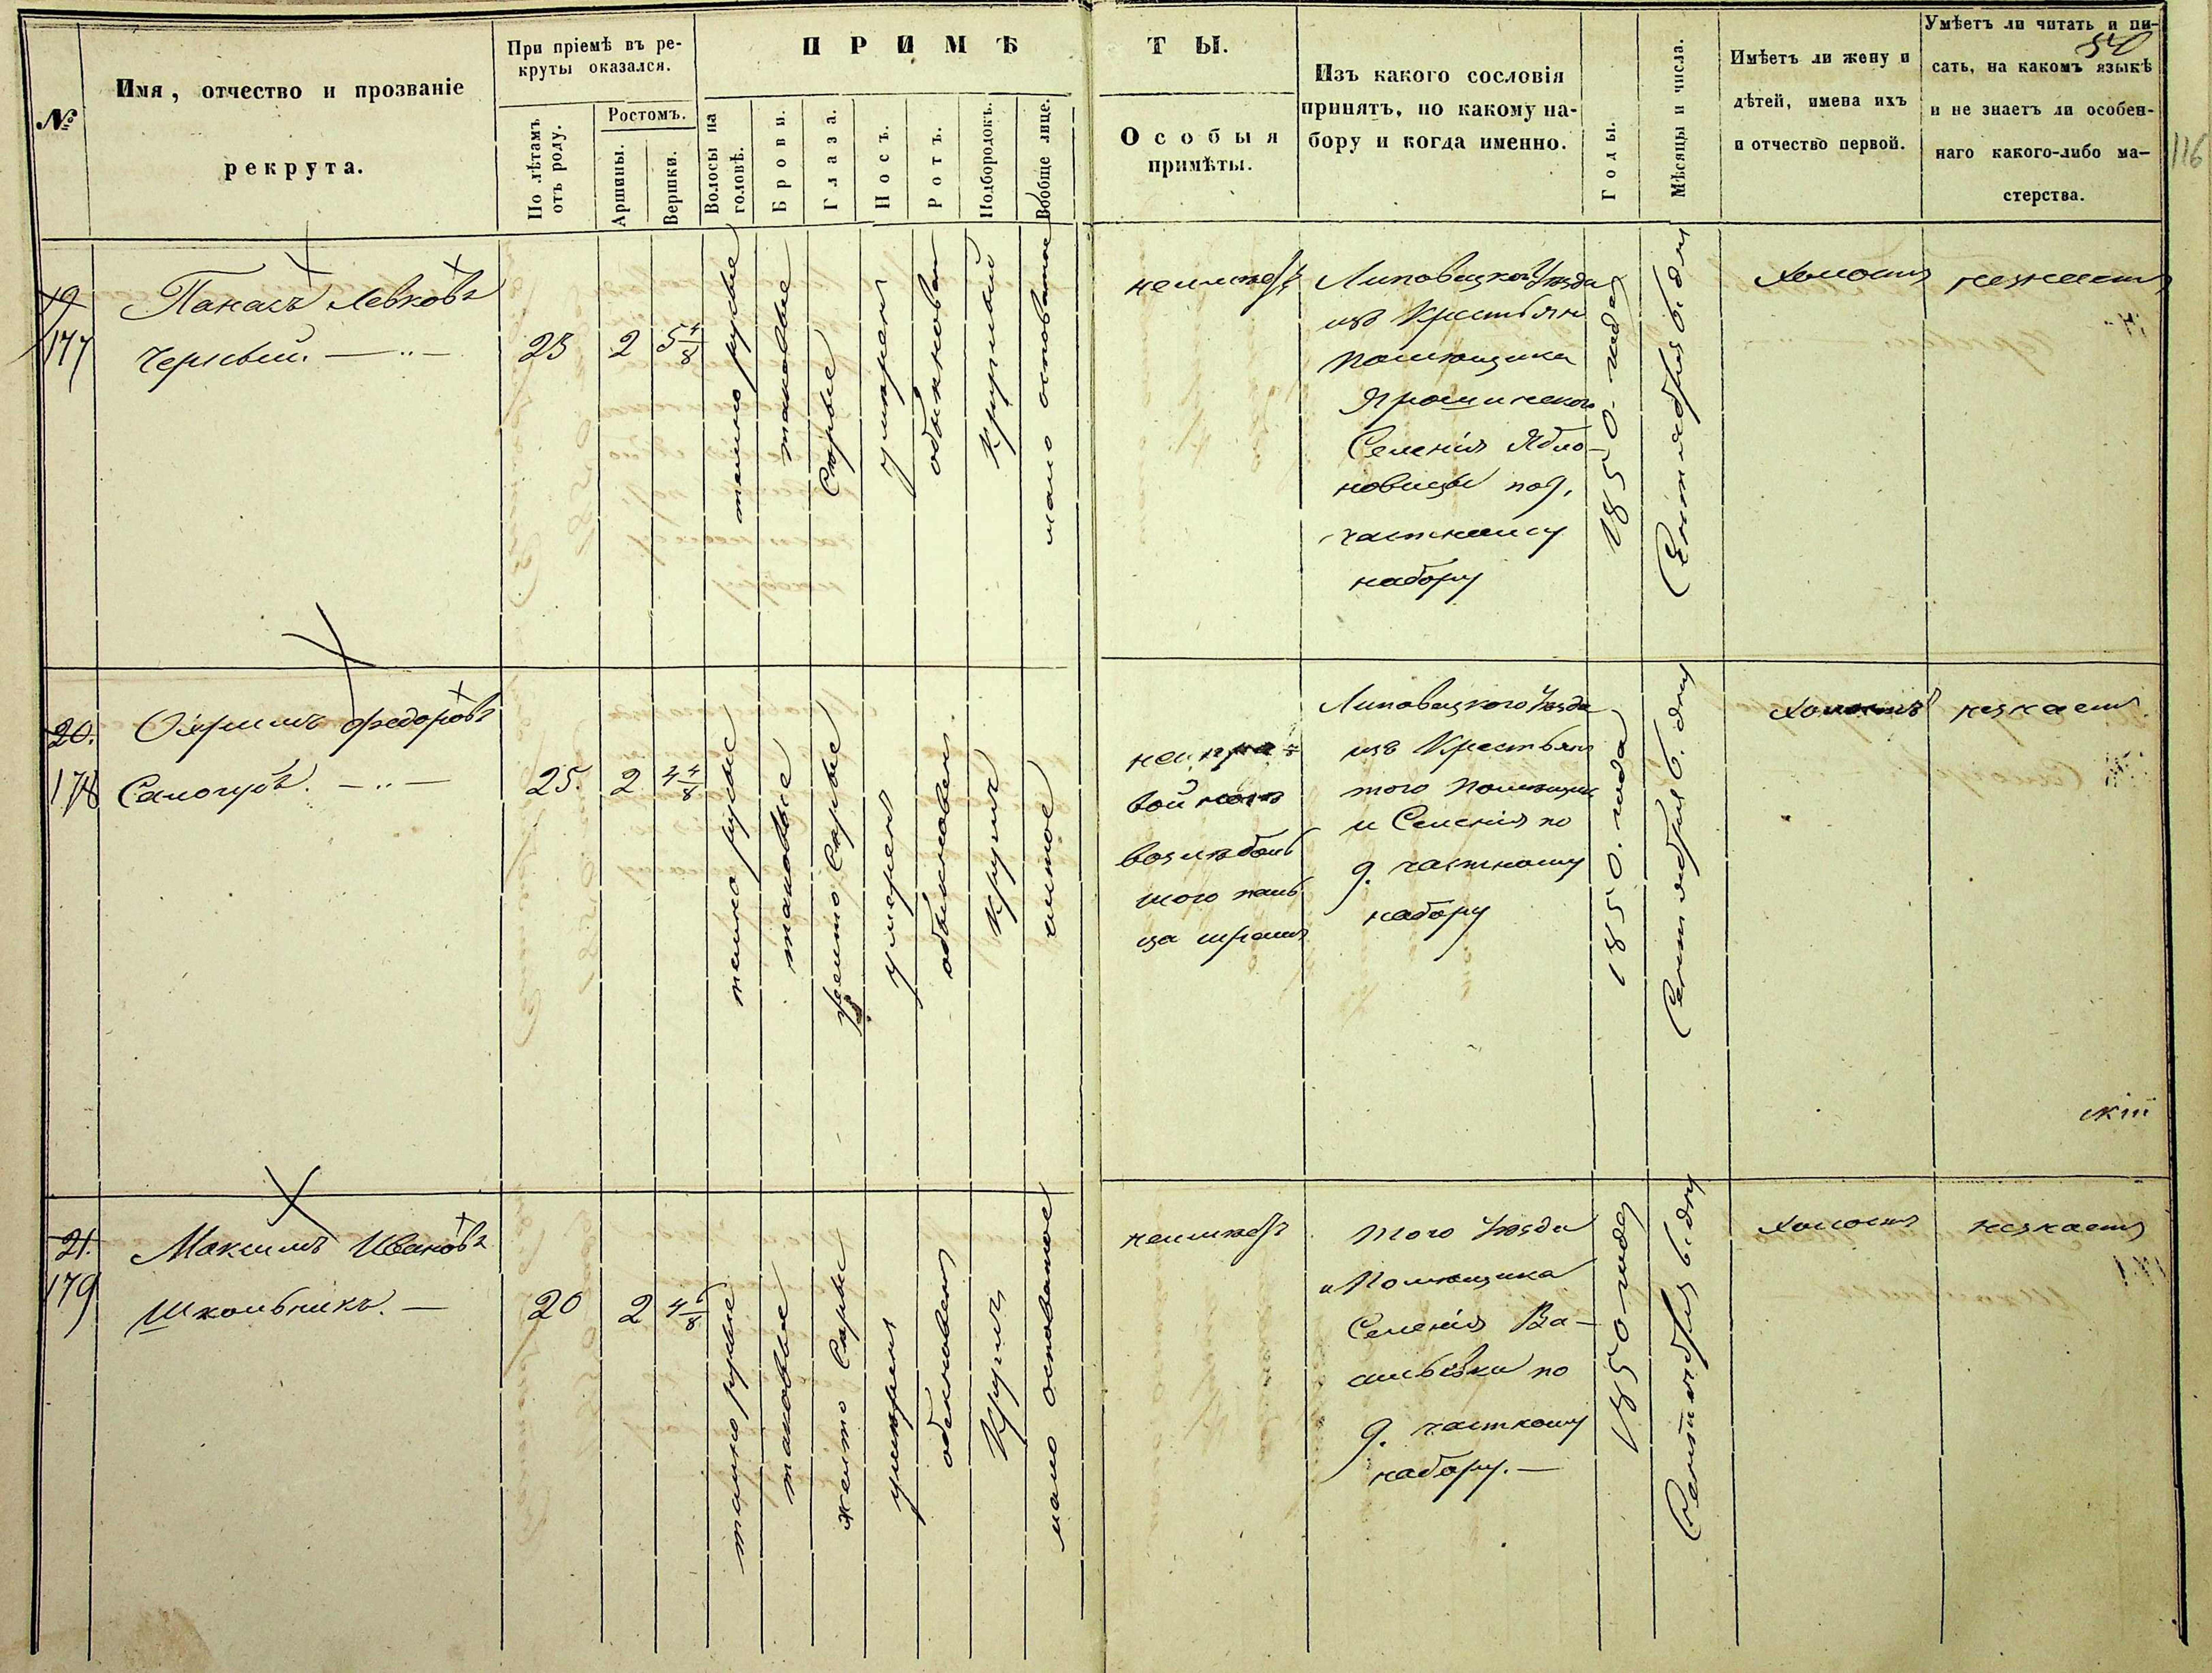 №
Имя, отчество и прозваніе
рекрута.
При пріемѣ въ ре-
круты оказался.
По лѣтамъ
отъ роду.
Ростомъ.
Аршины.
Вершки.
ПРИМѢ
Волосы на
головѣ.
Брови.
Глаза.
Носъ.
Ротъ.
Подбородокъ.
Вообще лице.
ТЫ.
Особыя
примѣты.
Изъ какого сословія
принятъ, по какому на-
бору и когда именно.
Годы.
Мѣсяцы и числа.
Имѣетъ ли жену и
дѣтей, имена ихъ
и отчество первой.
Умѣетъ ли читать и пи-
сать, на какомъ языкѣ
и не знаетъ ли особен-
наго какого-либо ма-
стерства.
116
19
177
Панасъ Левковъ
Черный.
23
2
5 4/8
темно русые
таковые
Серые
умѣренъ
обыкновен
Круглый
мало осповатое
неимѣетъ
Липовецкого Уѣзда
изъ Крестьян
помѣщика
Ярошинского
Селенія Ябло-
новицы по 9.
частному
набору
1850 года
Сентября 6. дня
Холостъ
незнаетъ
20.
178
Охримъ Федоровъ
Самогубъ.
25.
2
4 4/8
темно русые
таковые
желто Серые
умѣренъ
обыкновен.
Кругл
чистое
на пра=
вой ногѣ
возлѣ боль
шого паль
ца шрамъ
Липовецкого Уѣзда
изъ Крестьян
того помѣщик
и Селенія по
9. частному
набору
1850. года
Сентября 6. дня
Холостъ
незнаетъ
21.
179
Максимъ Ивановъ
Школьникъ.
20
2
темно русые
таковые
желто Серые
умѣренъ
обыкновенъ
Кругл
мало осповатое
неимѣетъ
того Уѣзда
и Помѣщика
Селенія Ва-
сильевки по
9. частному
набору.
1850 года
Сентября 6. дня
Холостъ
незнаетъ